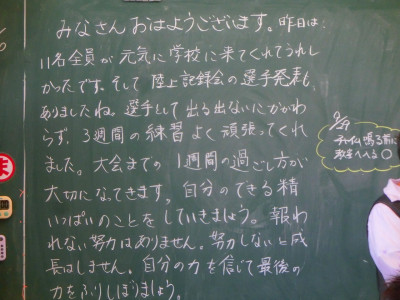 みなさんおはようございます。昨日は、
11名全員が元気に学校に来てくれてうれし
かったです。そして陸上記録会の選手発表も
ありましたね。選手として出る出ないにかかわ
らず、3週間の練習よく頑張ってくれ
ました。大会までの1週間の過ごし方が
大切になってきます。自分のできる精
いっぱいのことをしていきましょう。報わ
れない努力はありません。努力しないと成
長はしません。自分の力を信じて最後の
力をふりしぼりましょう。
9/29
チャイム鳴る前に
教室へ入る〇